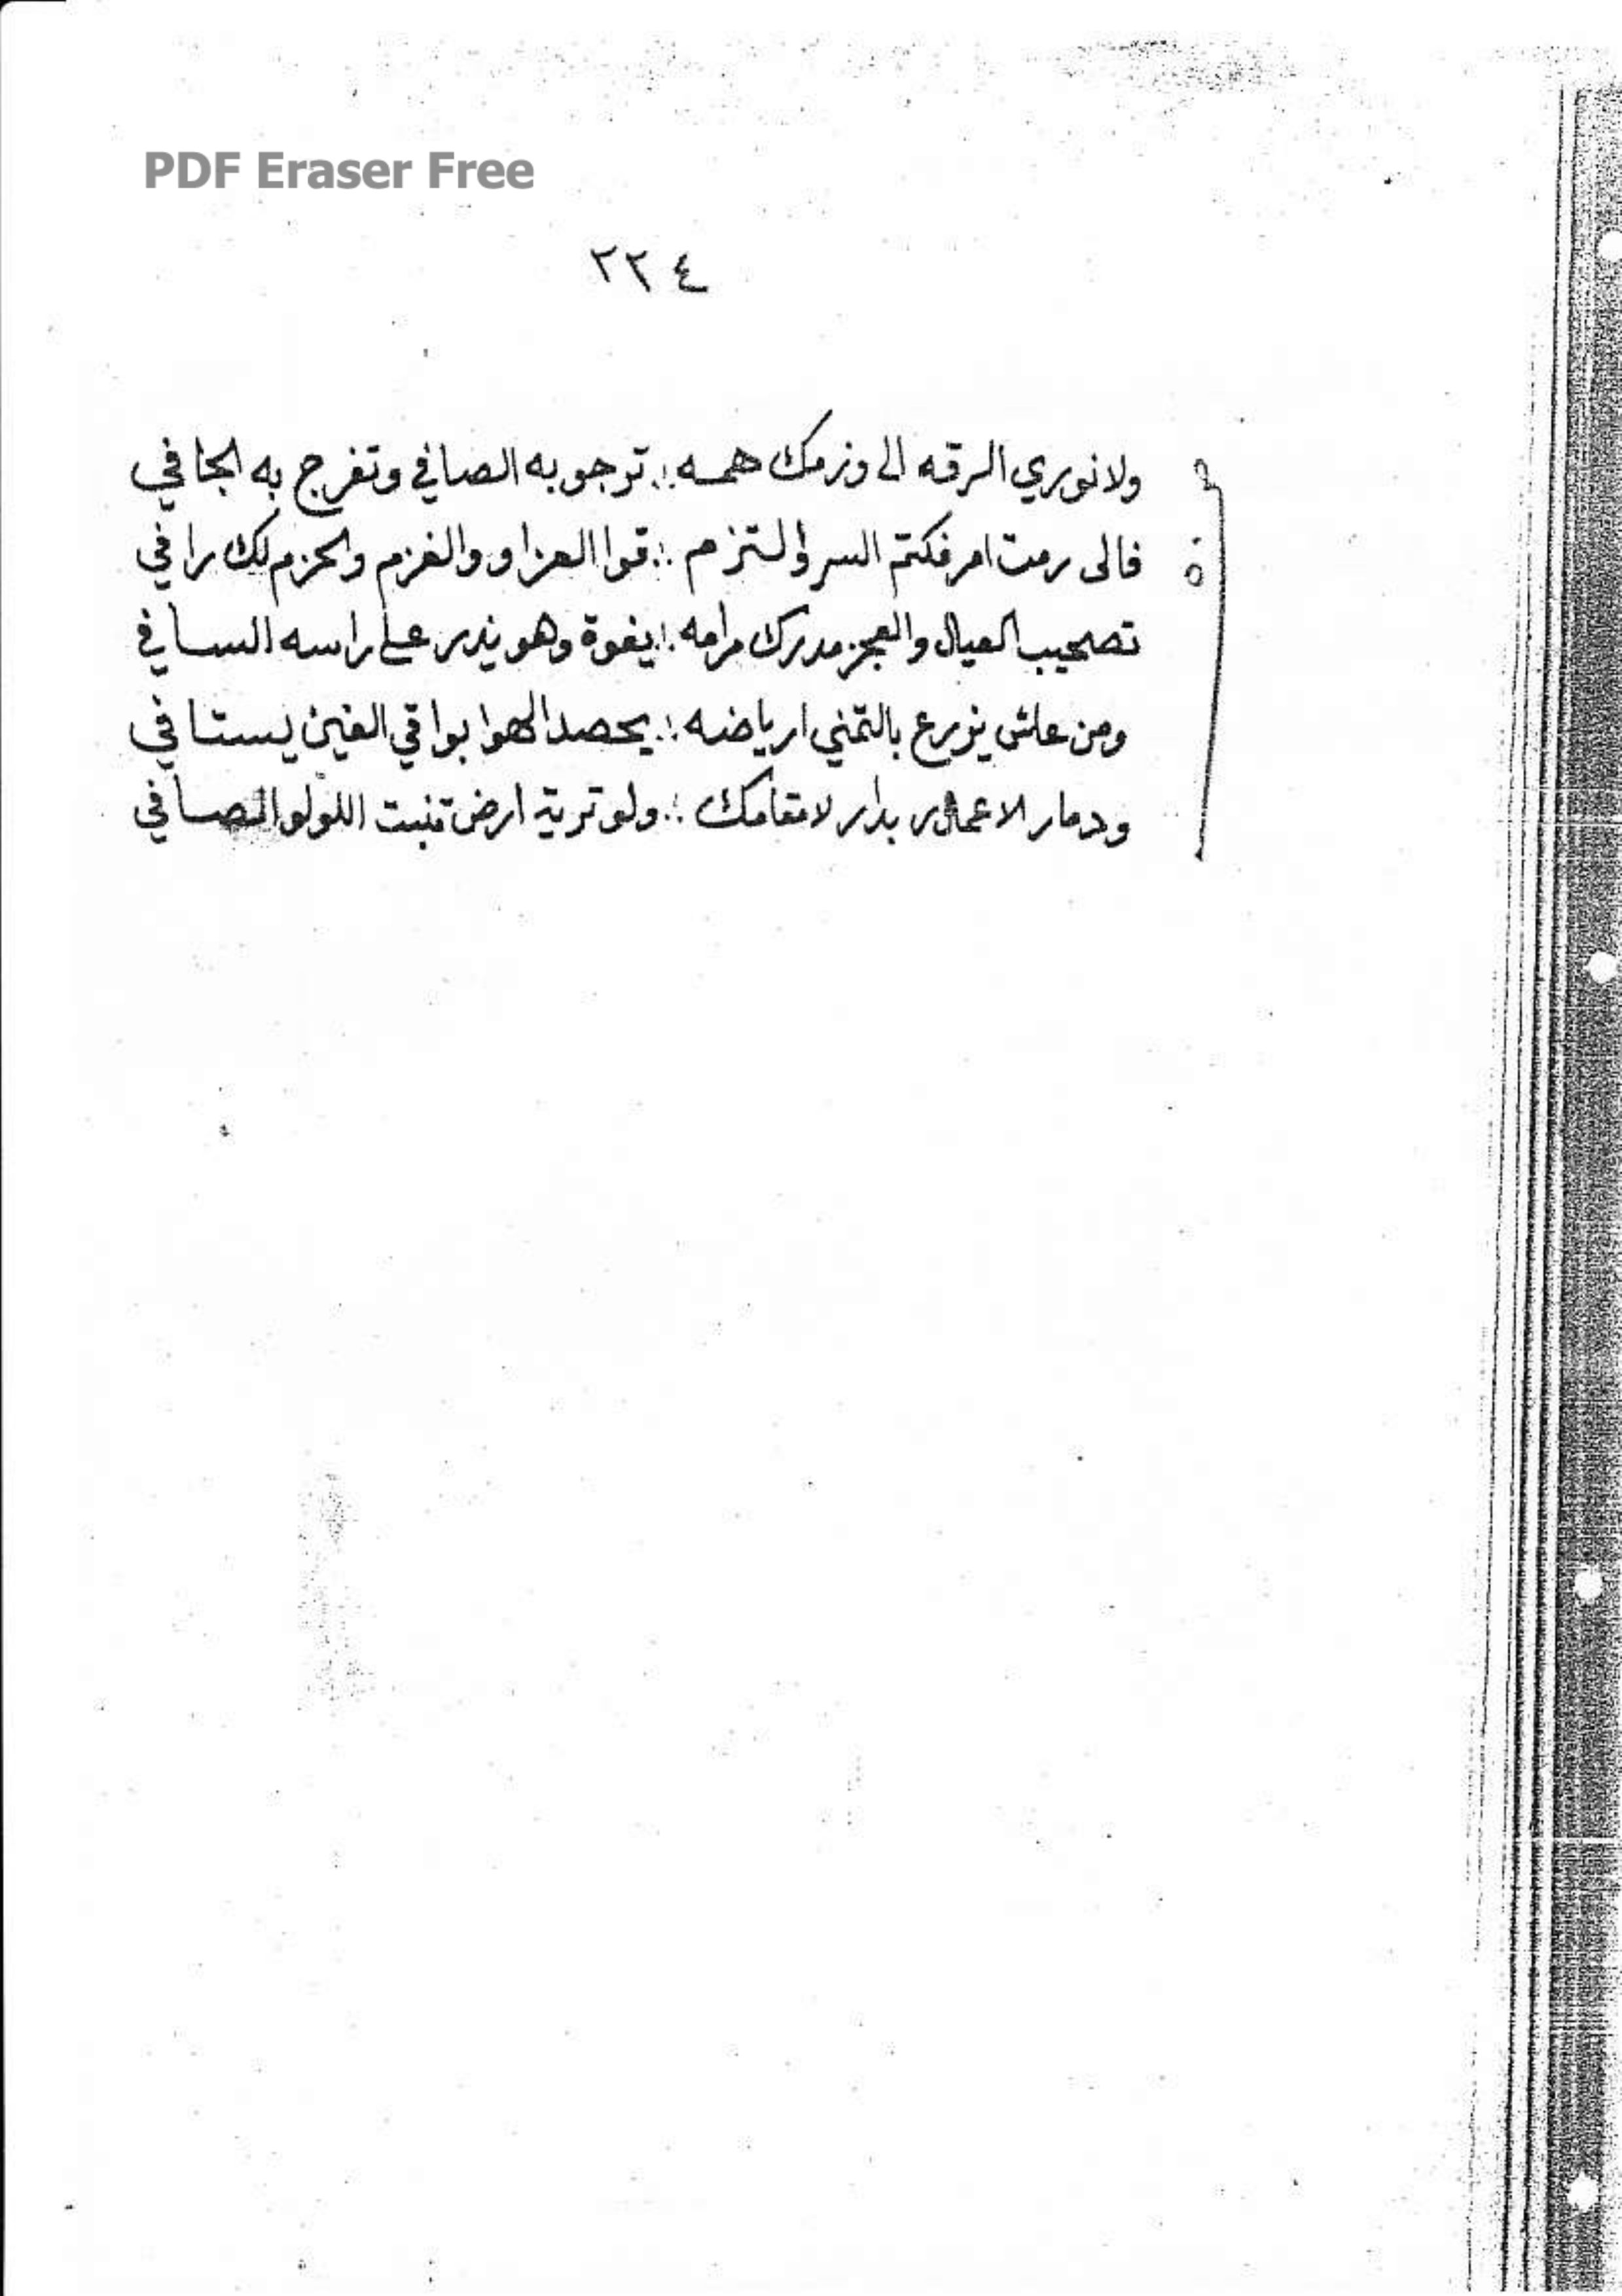 PDF Eraser Free
٢٢٤
ولا نوري الرقه الى وزمك همه ∴ توجو به الصافي وتفرج به الجافي
فالى رمت امر فكتم السر والتزم ∴ قوا العزاو والغزم والحزم لك رافي
تصحيب العيال والعجز مدرك مرامه ∴ يفوة وهو يذر على راسه السافي
ومن عاش يزرع بالتمني ارياضه ∴ يحصد الهوا بواقي الغين يستافي
ودمار الاعمار بدار لا مقامك ∴ ولو تربة ارض تنبت اللولو الصافي